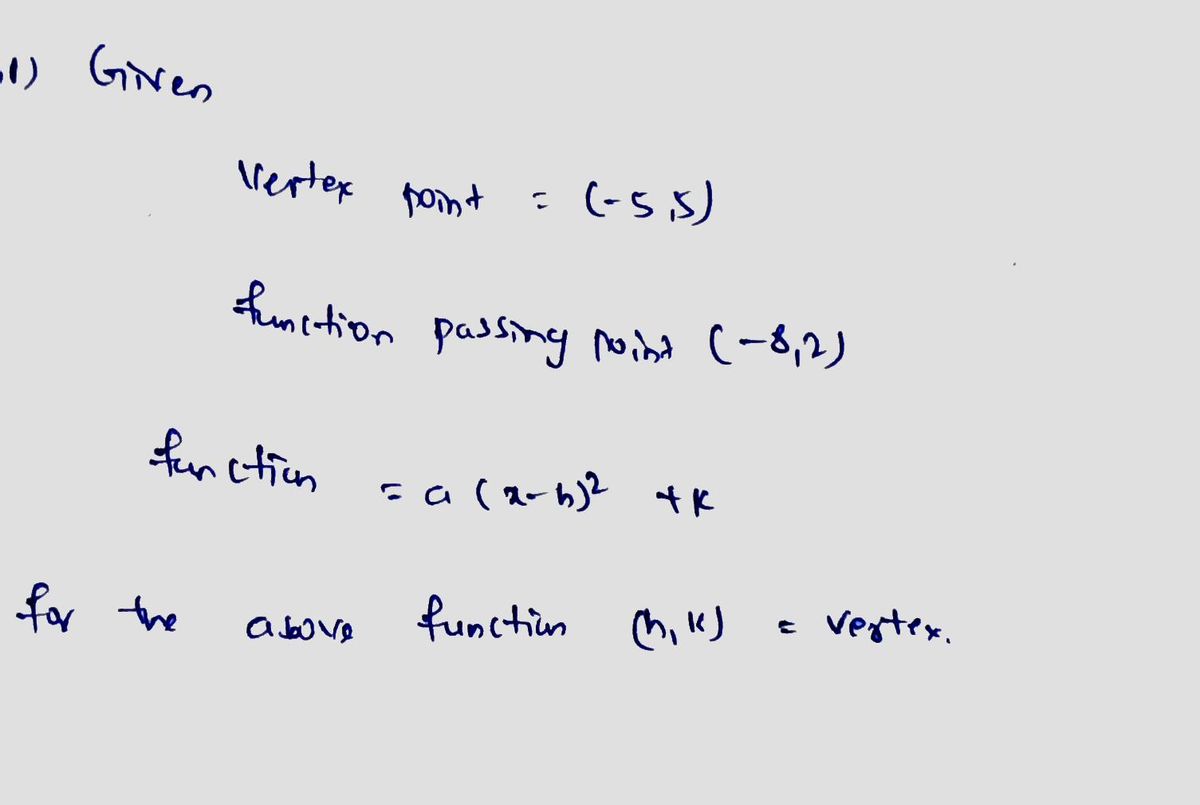 1) Given
Vertex point = (-5,5)
function passing point (-8,2)
function = a (x-h)² + k
for the above function (h,k) = vertex.